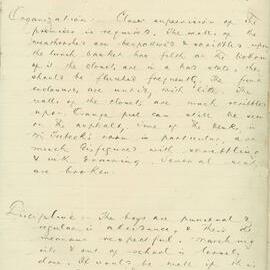 Organization :- Closer supervision of the
premises is required. The walls of the
weathershed are bespattered & scribbles upon
the lunch basket has filth at the bottom
of it the closets are in a bad state, they
should be flushed frequently. The front
enclosures are untidy with litter. The
walls of the closets are much scribbled
upon. Orange peel can still be seen
on the asphalt, some of the desks, in
Mr room in particular, are
much disfigured with scribbling
& ink Several seats
are broken.
Discipline :- The boys are punctual &
regular in attendance, & their
manner respectful. marching
into & out of school is loosely
done. It would be well if the